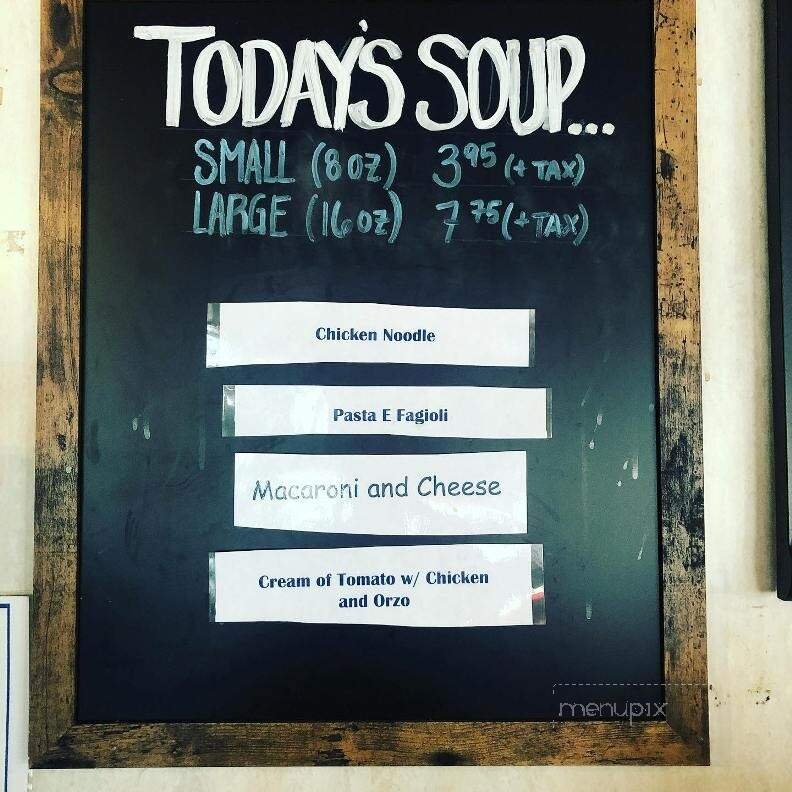 TODAY'S SOUP...
SMALL (8 OZ) 3.95 (+ TAX)
LARGE (16 OZ) 7.75 (+ TAX)
Chicken Noodle
Pasta E Fagioli
Macaroni and Cheese
Cream of Tomato w/ Chicken
and Orzo
menupix